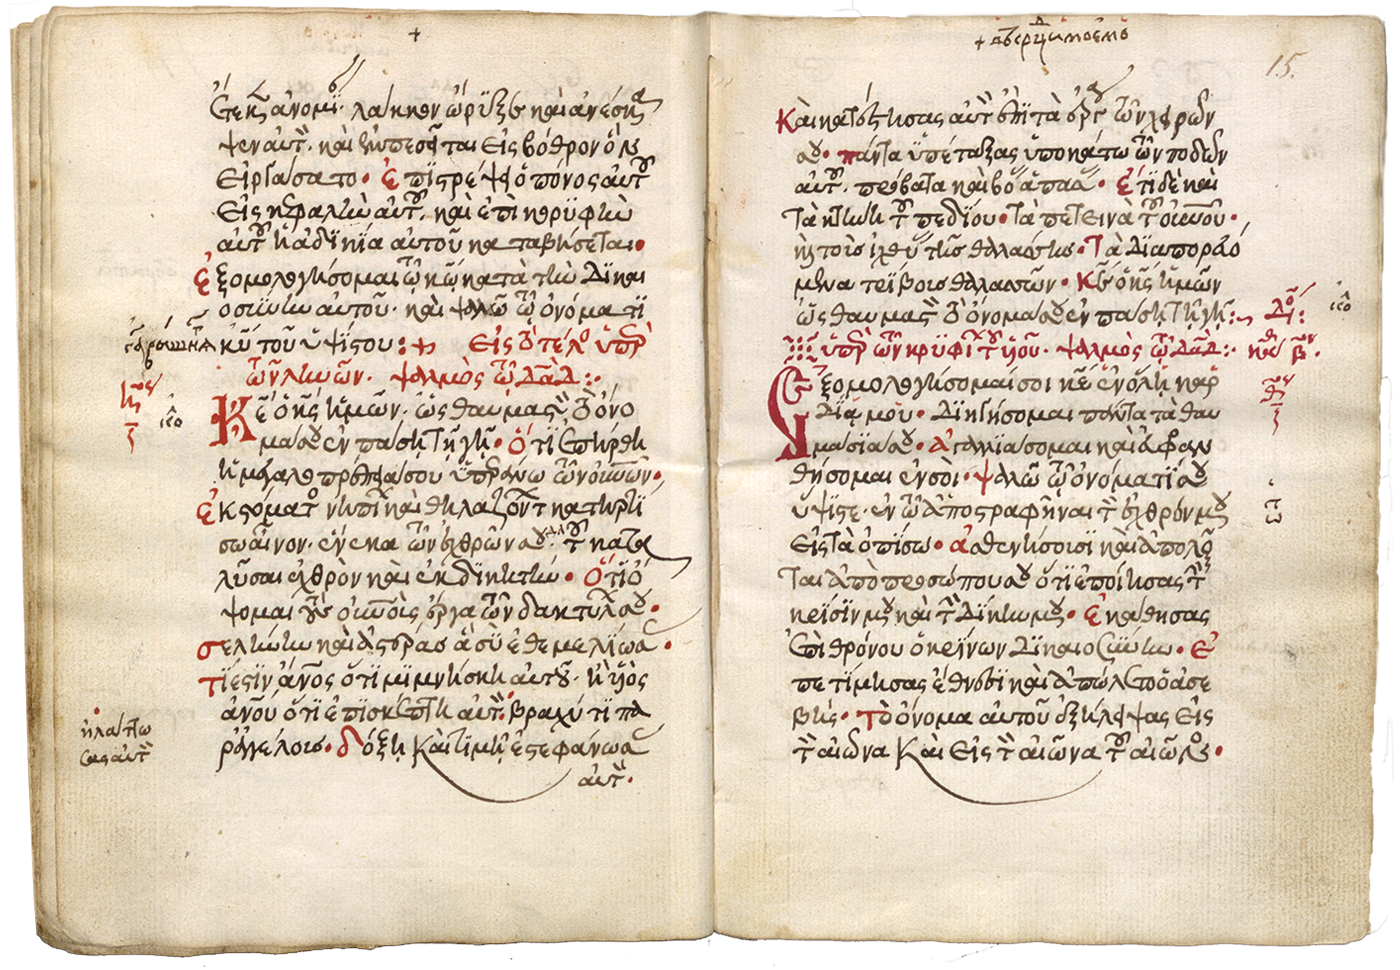 +
ἔτεκεν ἀνομίαν. λάκκον ὤρυξε καὶ ἀνέσκα
ψεν αὐτὸν. καὶ ἐμπεσεῖται εἰς βόθρον ὃν
εἰργάσατο· ἐπιστρέψει ὁ πόνος αὐτοῦ
εἰς κεφαλὴν αὐτοῦ. καὶ ἐπὶ κορυφὴν
αὐτοῦ ἡ ἀδικία αὐτοῦ καταβήσεται·
ἐξομολογήσομαι τῷ κῶ κατὰ τὴν δικαι
οσύνην αὐτοῦ. καὶ ψαλῶ τῷ ὀνόματι
κῦ τοῦ ὑψίστου:+ Εἰς τὸ τέλος ὑπὲρ
τῶν ληνῶν. ψαλμὸς τῷ Δᾶδ:·
Κε ὁ κς ἡμῶν. ὡς θαυμαστὸν τὸ ὄνο
μα σου ἐν πάσῃ τῇ γῇ· ὅτι ἐπήρθη
ἡ μεγαλοπρέπειά σου ὑπεράνω τῶν οὐνῶν·
ἐκ στόματος νηπίων καὶ θηλαζόντων κατηρτί
σω αἶνον. ἕνεκα τῶν ἐχθρῶν σου. τοῦ κατα
λῦσαι ἐχθρὸν καὶ ἐκδικητήν· ὅτι ὄ
ψομαι τοὺς οὐνοὺς ἔργα τῶν δακτύλων σου·
σελήνην καὶ ἀστέρας ἃ σὺ ἐθεμελίωσας·
τί ἐστιν ἄνος ὅτι μιμνήσκῃ αὐτοῦ. ἢ υἱὸς
ἀνου ὅτι ἐπισκέπτῃ αὐτὸν· βραχύ τι πα
ρ ἀγγέλοις· δόξῃ καὶ τιμῇ ἐστεφάνωσας
αὐτὸν·
ἠλάττω
σας αὐτὸν
15.
καὶ κατέστησας αὐτὸν ἐπὶ τὰ ἔργα τῶν χειρῶν
σου· πάντα ὑπέταξας ὑποκάτω τῶν ποδῶν
αὐτοῦ. πρόβατα καὶ βόας ἁπάσας· ἔτι δὲ καὶ
τὰ κτήνη τοῦ πεδίου· τὰ πετεινὰ τοῦ οὐνοῦ·
καὶ τοὺς ἰχθύας τῆς θαλάσσης· τὰ διαπορευό
μενα τρίβους θαλασσῶν· κε ὁ κς ἡμῶν
ὡς θαυμαστὸν τὸ ὄνομα σου ἐν πάσῃ τῇ γῇ:
ὑπὲρ τῶν κρυφίων τοῦ υἱοῦ. ψαλμὸς τῷ Δᾶδ:
Ἐξομολογήσομαί σοι κε ἐν ὅλῃ καρ
δίᾳ μου· διηγήσομαι πάντα τὰ θαυ
μάσιά σου· ἀγαλλιάσομαι καὶ εὐφραν
θήσομαι ἐν σοὶ· ψαλῶ τῷ ὀνόματί σου
ὕψιστε. ἐν τῷ ἀποστραφῆναι τὸν ἐχθρόν μου
εἰς τὰ ὀπίσω· ἀσθενήσουσι καὶ ἀπολοῦν
ται ἀπὸ προσώπου σου ὅτι ἐποίησας τὴν
κρίσιν μου καὶ τὴν δίκην μου· ἐκάθησας
ἐπὶ θρόνου ὁ κρίνων δικαιοσύνην· ἐ
πετίμησας ἔθνεσι καὶ ἀπώλετο ὁ ἀσε
βής· τὸ ὄνομα αὐτοῦ ἐξήλειψας εἰς
τὸν αἰῶνα καὶ εἰς τὸν αἰῶνα τοῦ αἰῶνος·